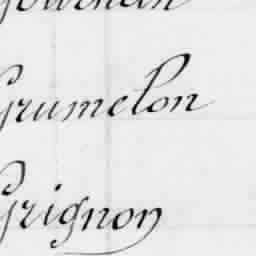 Grumelon
Grignon